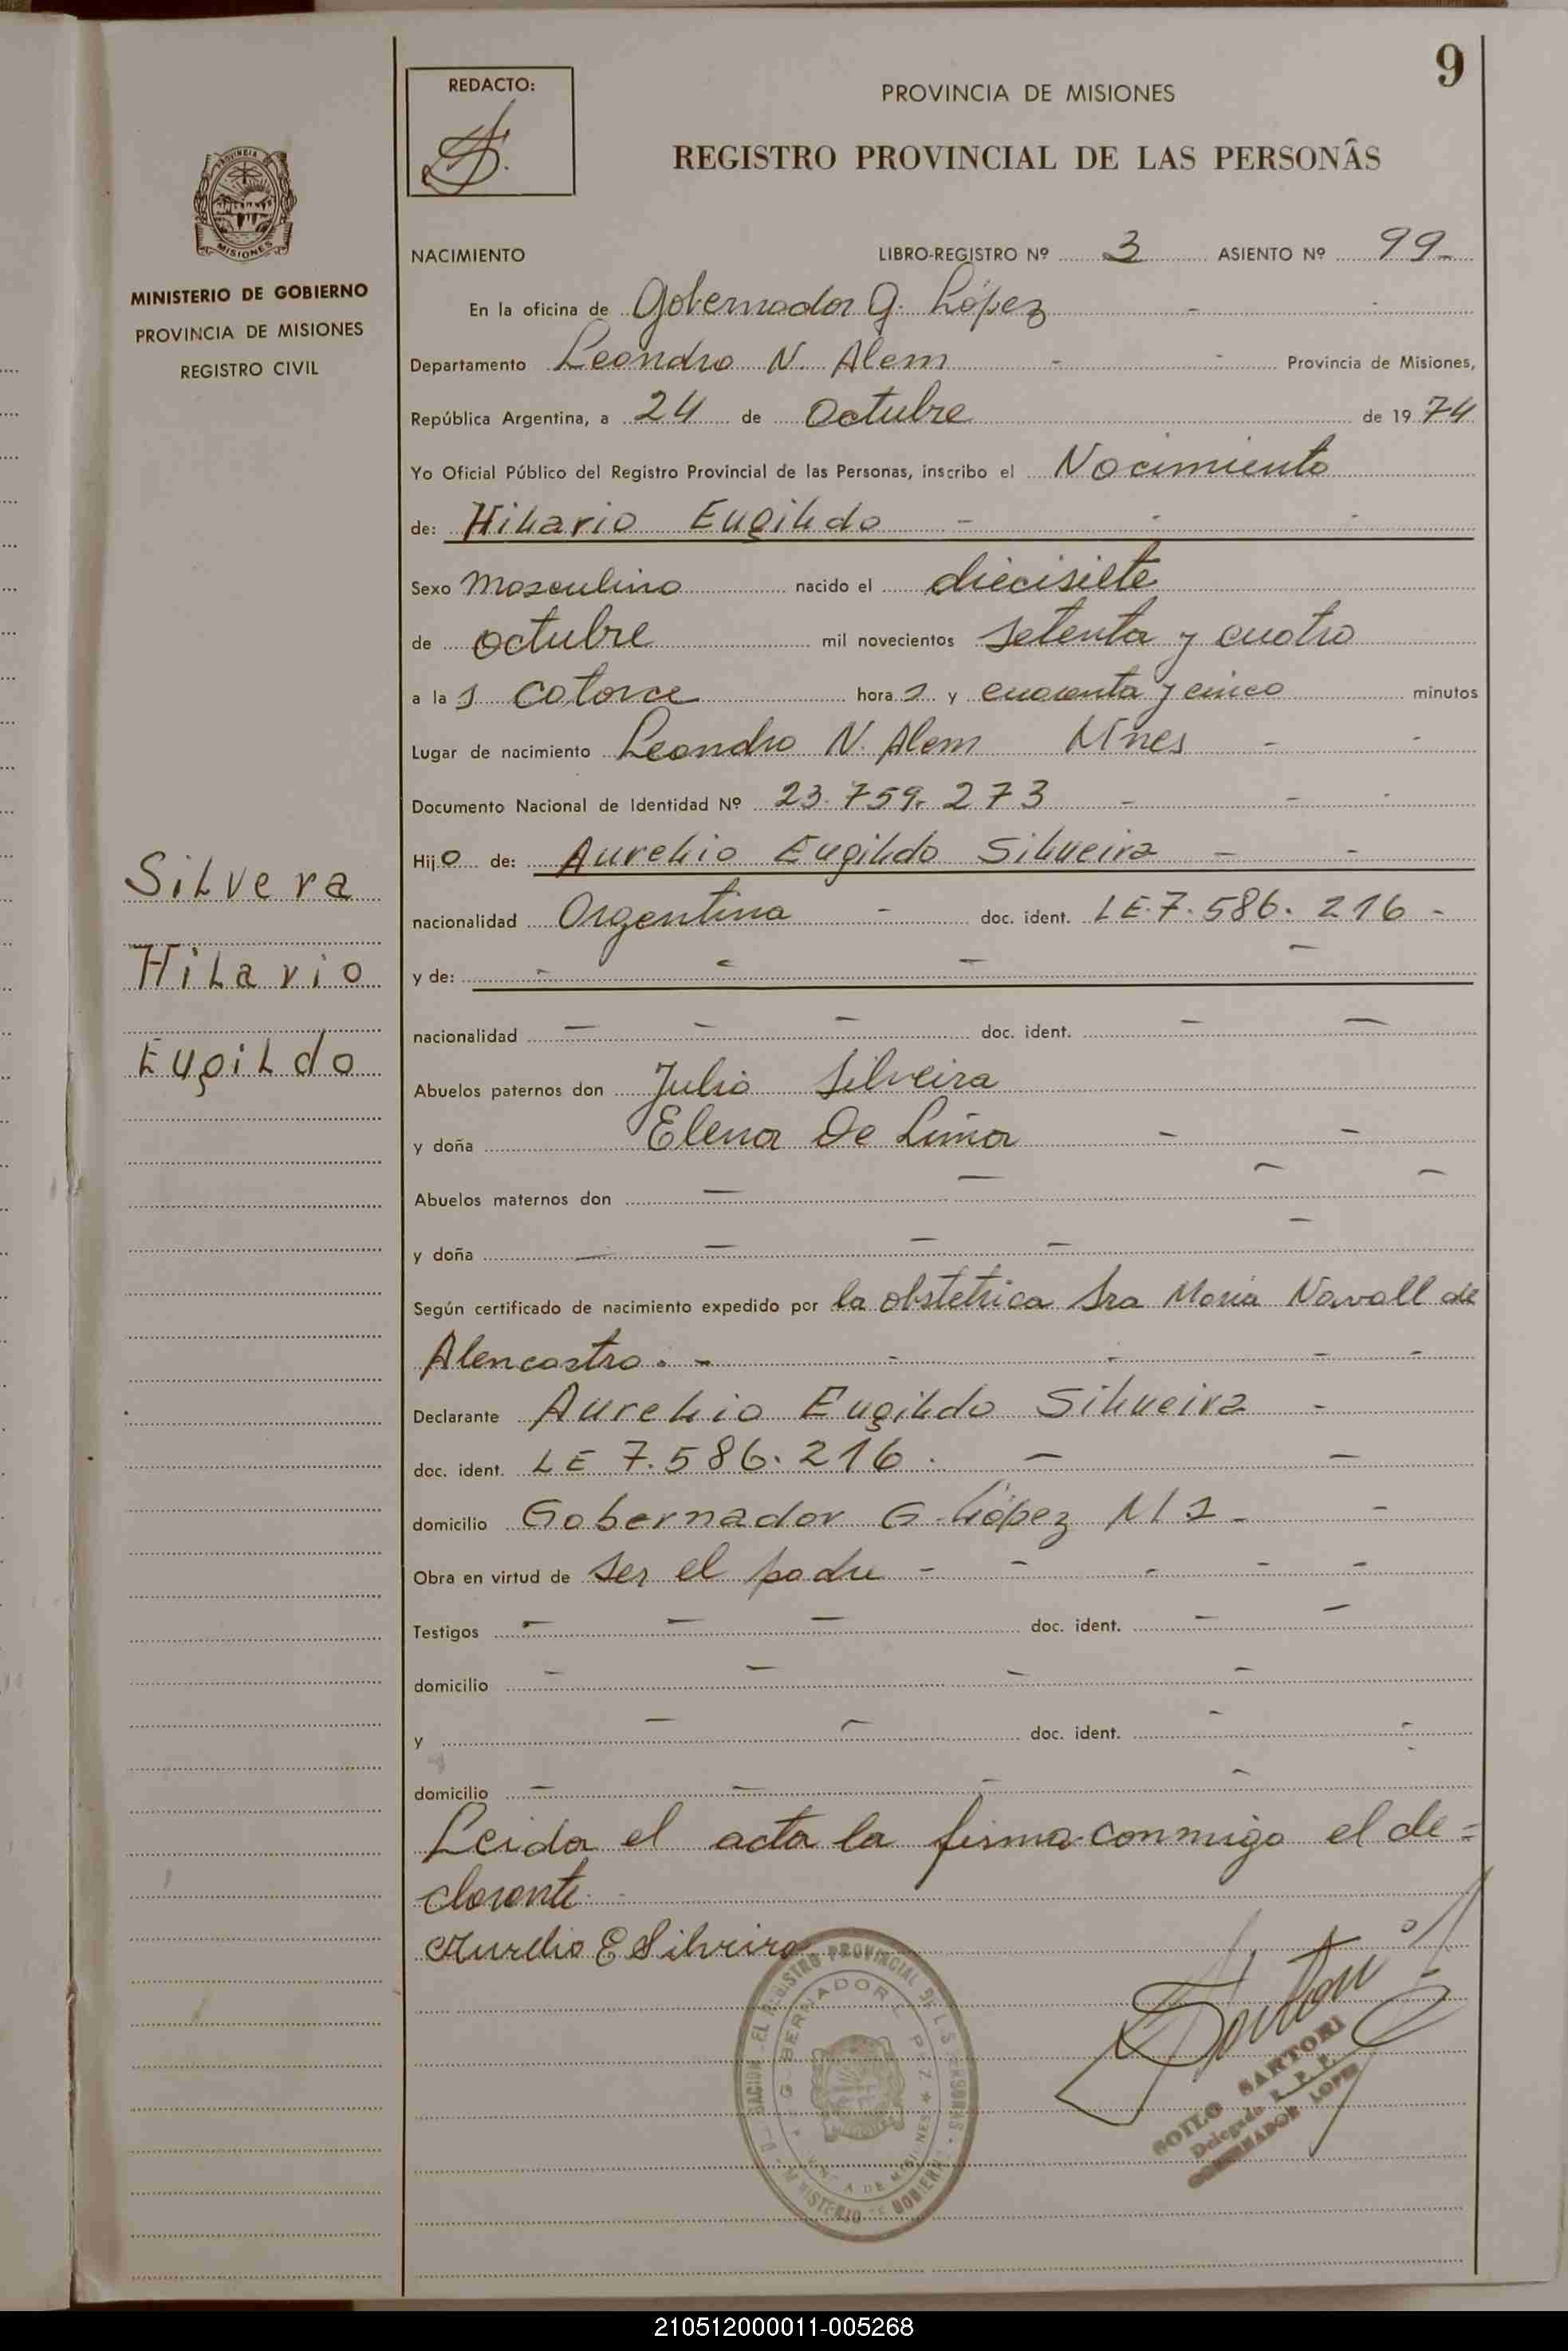 9
REDACTO:
PROVINCIA DE MISIONES
REGISTRO PROVINCIAL DE LAS PERSONAS
PROVINCIA
MISIONES
MINISTERIO DE GOBIERNO
PROVINCIA DE MISIONES
REGISTRO CIVIL
Silvera
Hilario
Eugildo
NACIMIENTO LIBRO-REGISTRO Nº 3 ASIENTO Nº 99-
En la oficina de Gobernador G. López -
Departamento Leandro N. Alem - - Provincia de Misiones,
República Argentina, a 24 de Octubre de 1974
Yo Oficial Público del Registro Provincial de las Personas, inscribo el Nacimiento
de: Hilario Eugildo - - -
Sexo masculino nacido el diecisiete
de octubre mil novecientos setenta y cuatro
a las catorce horas y cuarenta y cinco minutos
Lugar de nacimiento Leandro N. Alem Mnes - -
Documento Nacional de Identidad Nº 23.759.273 - - -
Hijo de: Aurelio Eugildo Silveira - -
nacionalidad Argentina - doc. ident. LE.7.586.216 -
y de: - - - -
nacionalidad - - - doc. ident. - -
Abuelos paternos don Julio Silveira
y doña Elena De Lima - -
Abuelos maternos don - - - -
y doña - - - - -
Según certificado de nacimiento expedido por la obstetrica Sra Maria Navall de
Alencastro. - - - - -
Declarante Aurelio Eugildo Silveira -
doc. ident. LE 7.586.216. - -
domicilio Gobernador G. López Ms - -
Obra en virtud de ser el padre - - - - -
Testigos - - - doc. ident. - -
domicilio - - - -
y - - doc. ident. - -
domicilio - - - -
Leida el acta la firma conmigo el de=
clarante.
Aurelio E Silveira
SARTORI
Delegado R. P. P.
GOBERNADOR LOPEZ
210512000011-005268